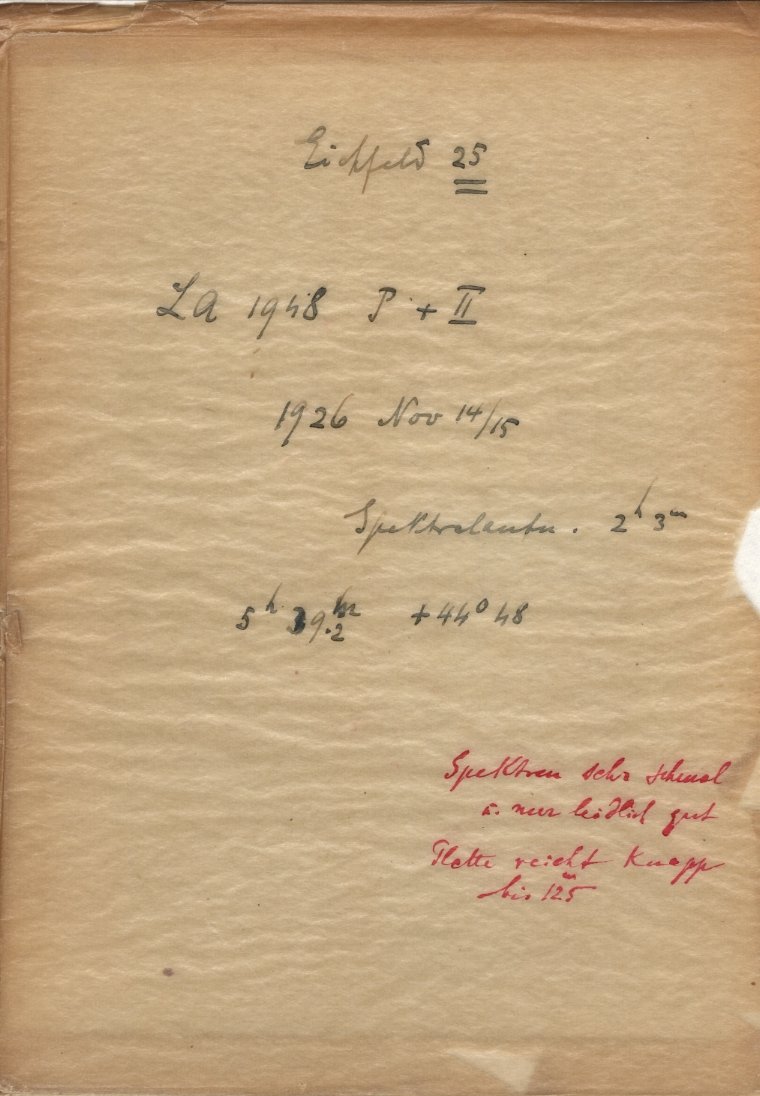 Eichfeld 25
LA 1948 P + II
1926 Nov 14/15
Spektralaufn. 2h 3m
5h 39.2m +44° 48
Spektren sehr schmal
u. nur leidlich gut
Platte reicht knapp
bis 12.5m